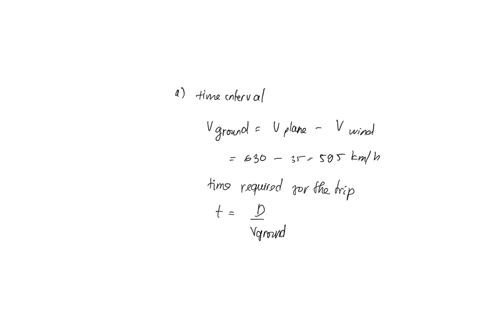 a) time interval
V ground = V plane - V wind
= 630 - 35 = 595 km/h
time required for the trip
t = D
Vground